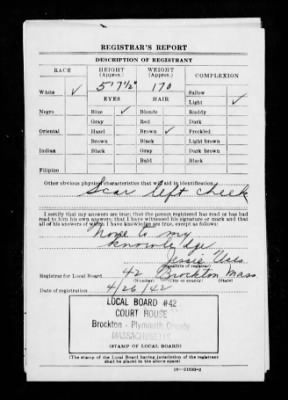 REGISTRAR'S REPORT
DESCRIPTION OF REGISTRANT
RACE HEIGHT (Approx.) WEIGHT (Approx.) COMPLEXION
5' 7½" 170 Sallow
White ✓ EYES HAIR Light ✓
Negro Blue ✓ Blonde Ruddy
Gray Red Dark
Oriental Hazel Brown ✓ Freckled
Brown Black Light brown
Indian Black Gray Dark brown
Bald Black
Filipino
Other obvious physical characteristics that will aid in identification
Scar left cheek
I certify that my answers are true; that the person registered has read or has had
read to him his own answers; that I have witnessed his signature or mark and that
all of his answers of which I have knowledge are true, except as follows:
None to my
knowledge
Jessie
Registrar for Local Board 42 Brockton Mass
(Number) (City or county) (State)
Date of registration 4/26/42
LOCAL BOARD #42
COURT HOUSE
Brockton - Plymouth County
MASSACHUSETTS
(STAMP OF LOCAL BOARD)
(The stamp of the Local Board having jurisdiction of the registrant
shall be placed in the above space)